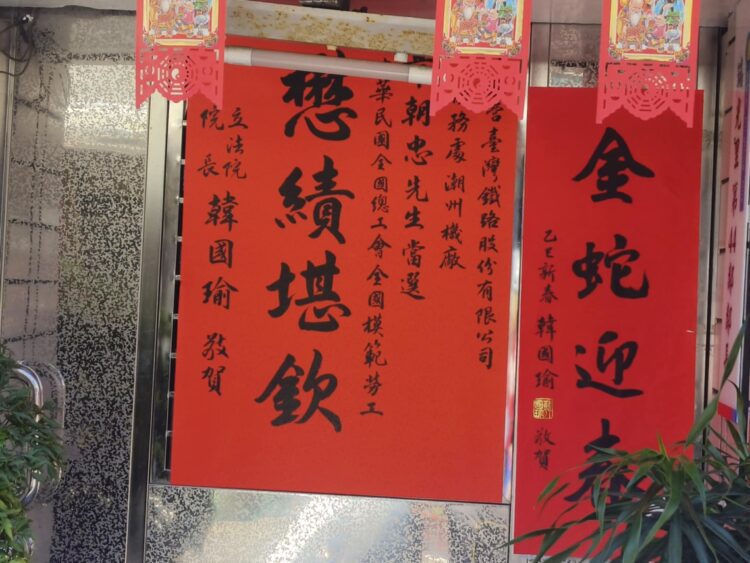 金蛇迎春
乙巳新春 韓國瑜 敬賀
營臺灣鐵路股份有限公司
務處潮州機廠
朝忠先生當選
華民國全國總工會全國模範勞工
懋績堪欽
立法院
院長 韓國瑜 敬賀